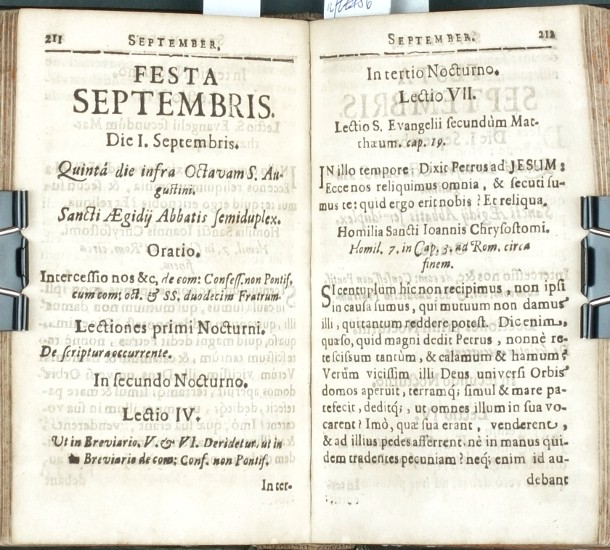 211 SEPTEMBER.
FESTA
SEPTEMBRIS.
Die I. Septembris.
Quintâ die infra Octavam S. Au-
gustini.
Sancti Ægidij Abbatis semiduplex.
Oratio.
Intercessio nos &c, de com: Confess. non Pontif.
cum com: oct. & SS. duodecim Fratrum
Lectiones primi Nocturni.
De scriptura occurrente.
In secundo Nocturno.
Lectio IV.
Ut in Breviario. V. & VI. Deridetur, ut in
Breviario de com: Conf. non Pontif.
In ter-
SEPTEMBER. 212
In tertio Nocturno.
Lectio VII.
Lectio S. Evangelii secundùm Mat-
thæum. cap. 19.
IN illo tempore: Dixit Petrus ad JESUM:
Ecce nos reliquimus omnia, & secuti su-
mus te: quid ergo erit nobis? Et reliqua.
Homilia Sancti Ioannis Chrysostomi.
Homil. 7. in Cap. 3. ad Rom. circa
finem.
SI centuplum hic non recipimus, non ipsi
in causa sumus, qui mutuum non damus
illi, qui tantum reddere potest. Dic enim,
quæso, quid magni dedit Petrus, nonnè re-
te scissum tantùm, & calamum & hamum?
Verùm vicissim illi Deus universi Orbis
domos aperuit, terramq; simul & mare pa-
tefecit, deditq;, ut omnes illum in sua vo-
carent? Imò, quæ sua erant, venderent,
& ad illius pedes afferrent, nè in manus qui-
dem tradentes pecuniam? neq; enim id au-
debant